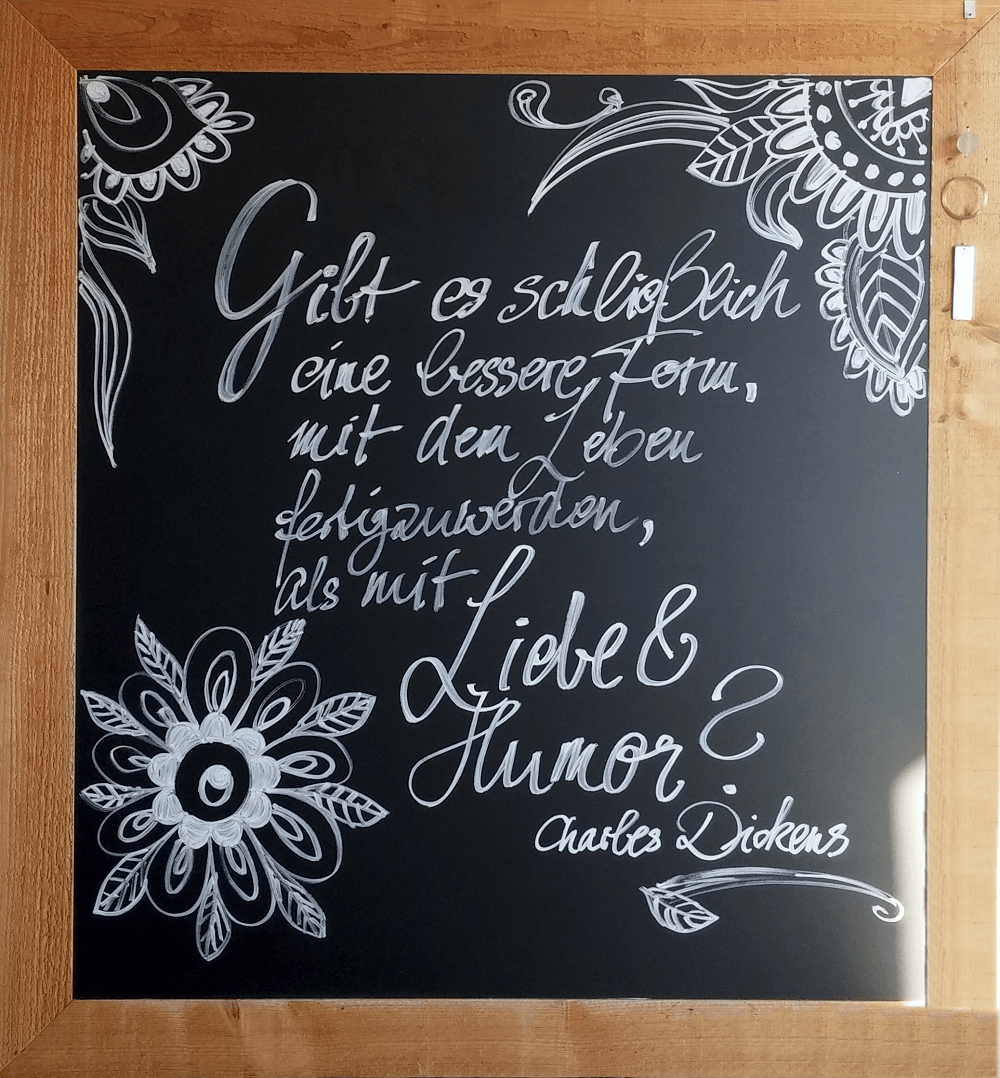 Gibt es schließlich
eine bessere Form,
mit dem Leben
fertigzuwerden,
als mit Liebe &
Humor?
Charles Dickens